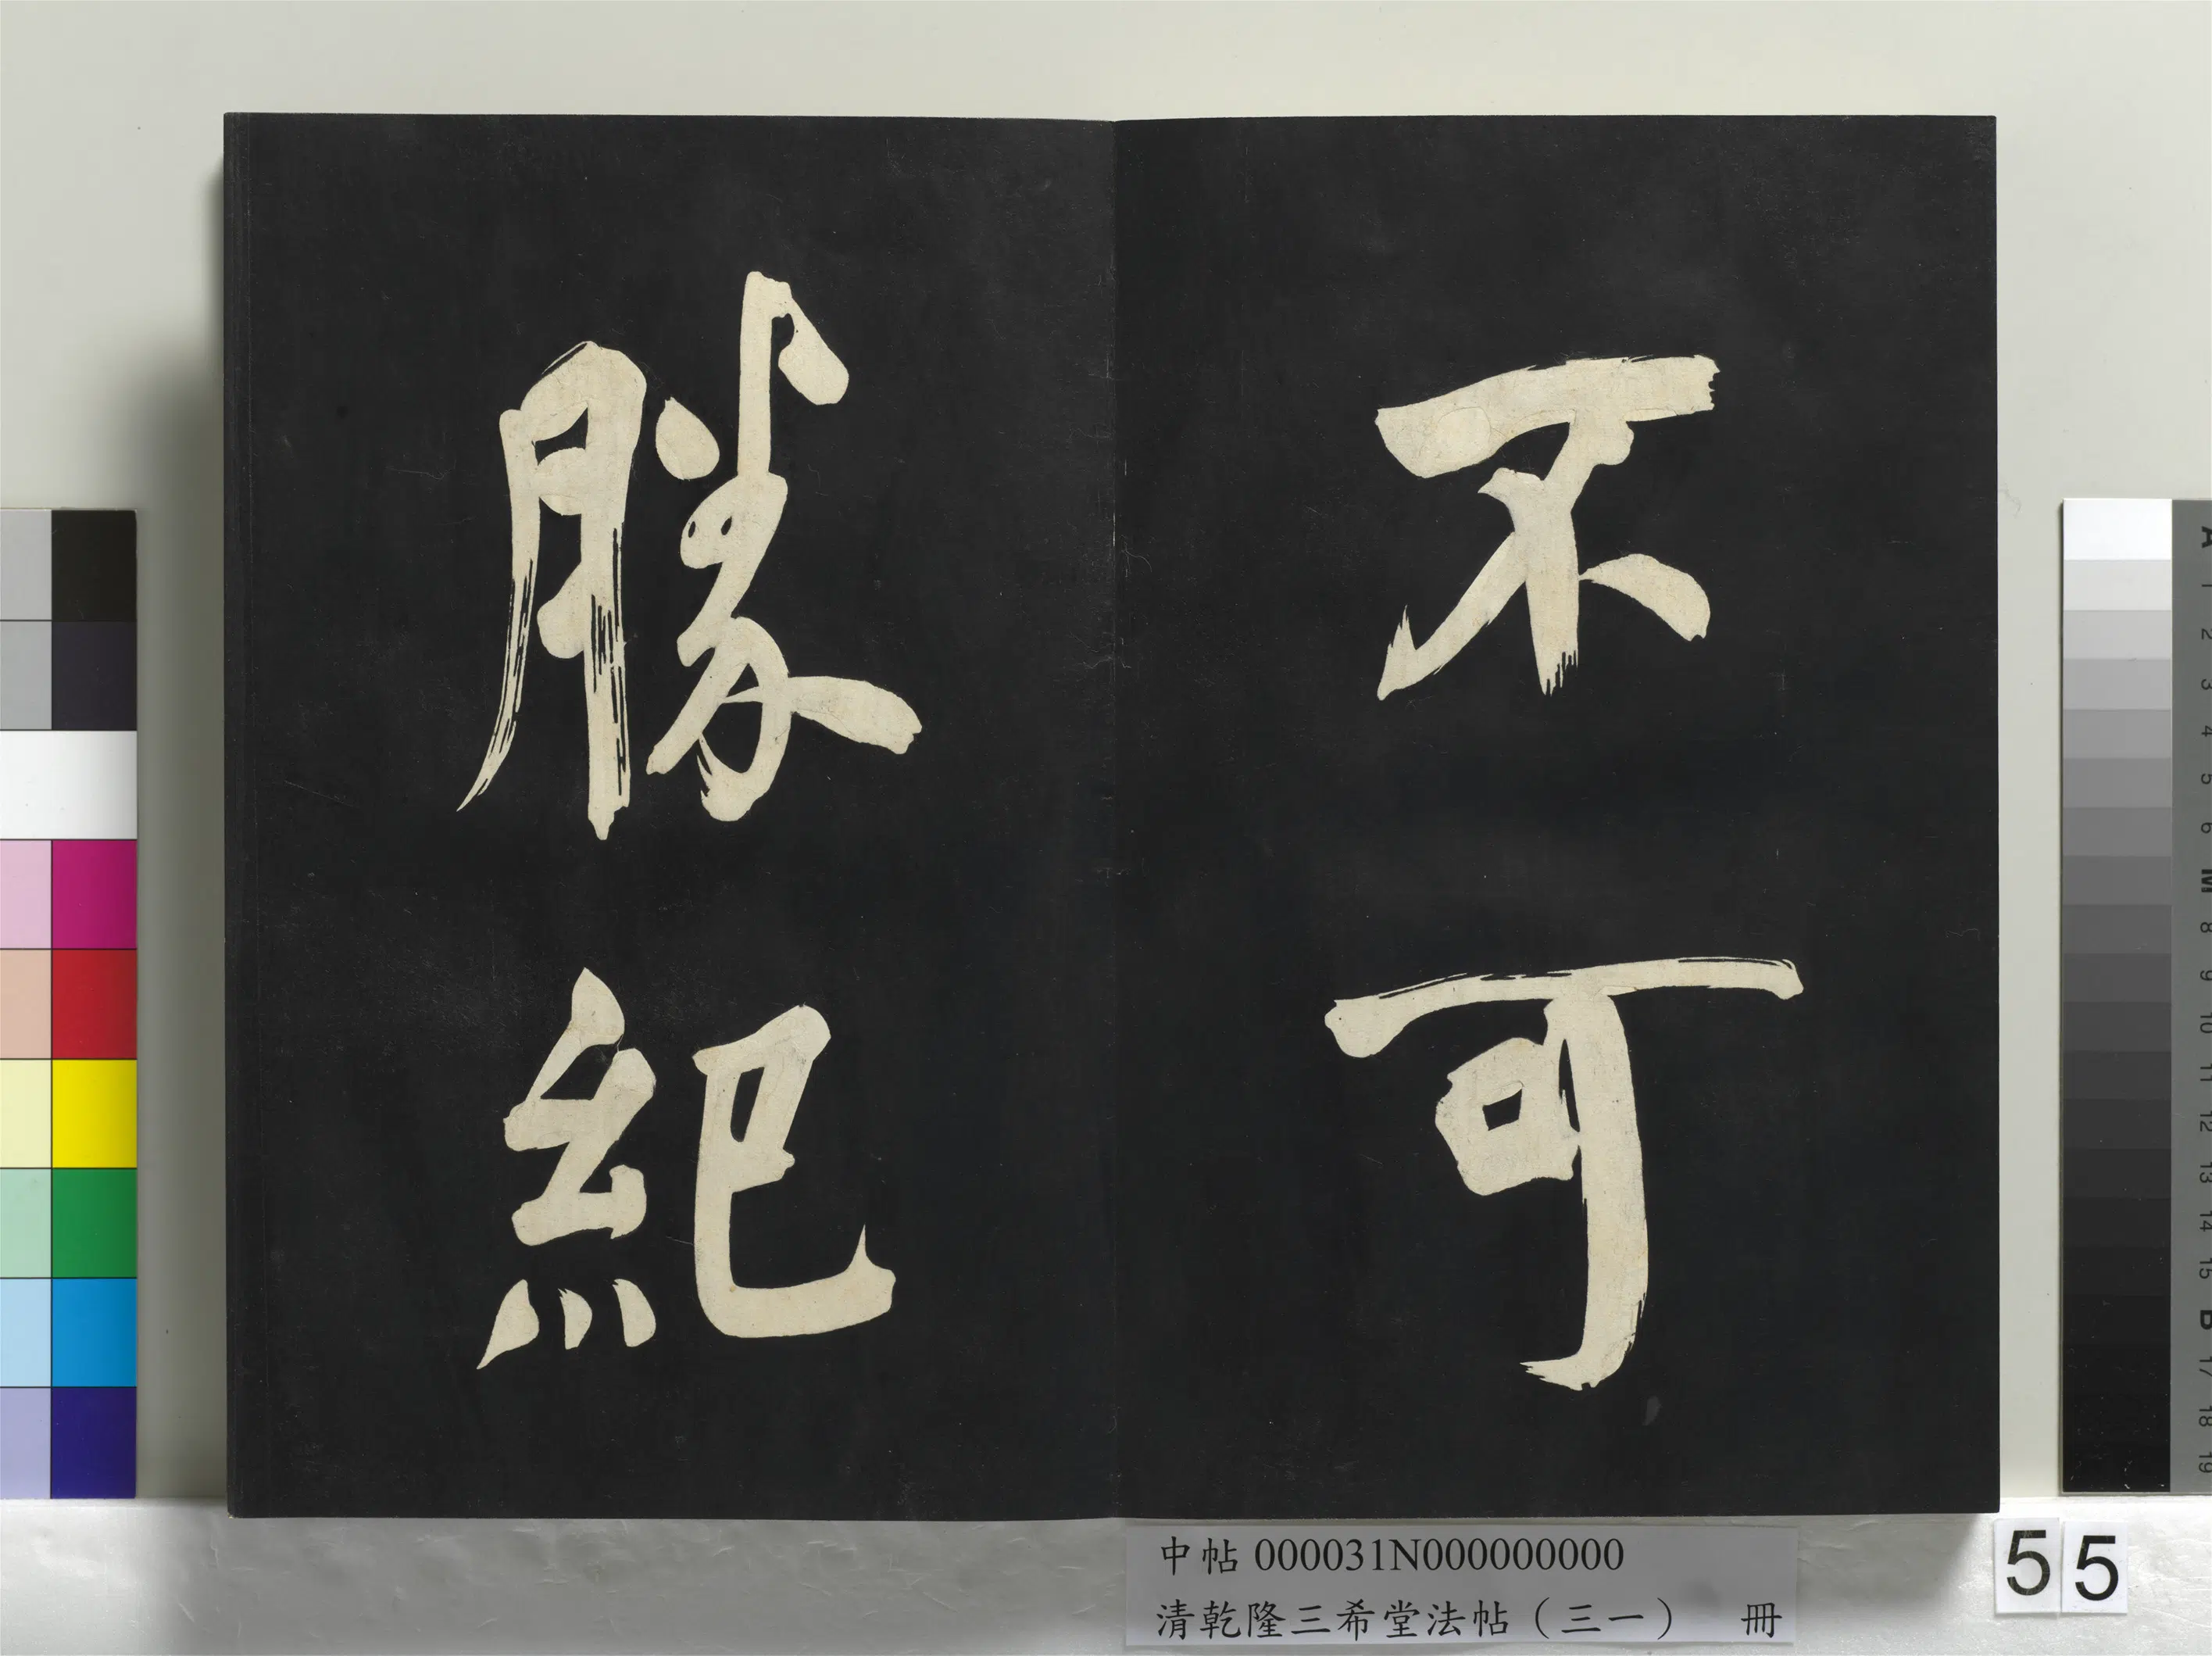 不可
勝紀
中帖 000031N000000000
清乾隆三希堂法帖（三一） 冊
55
A
1
2
3
4
5
6
M
8
9
10
11
12
13
14
15
B
17
18
19